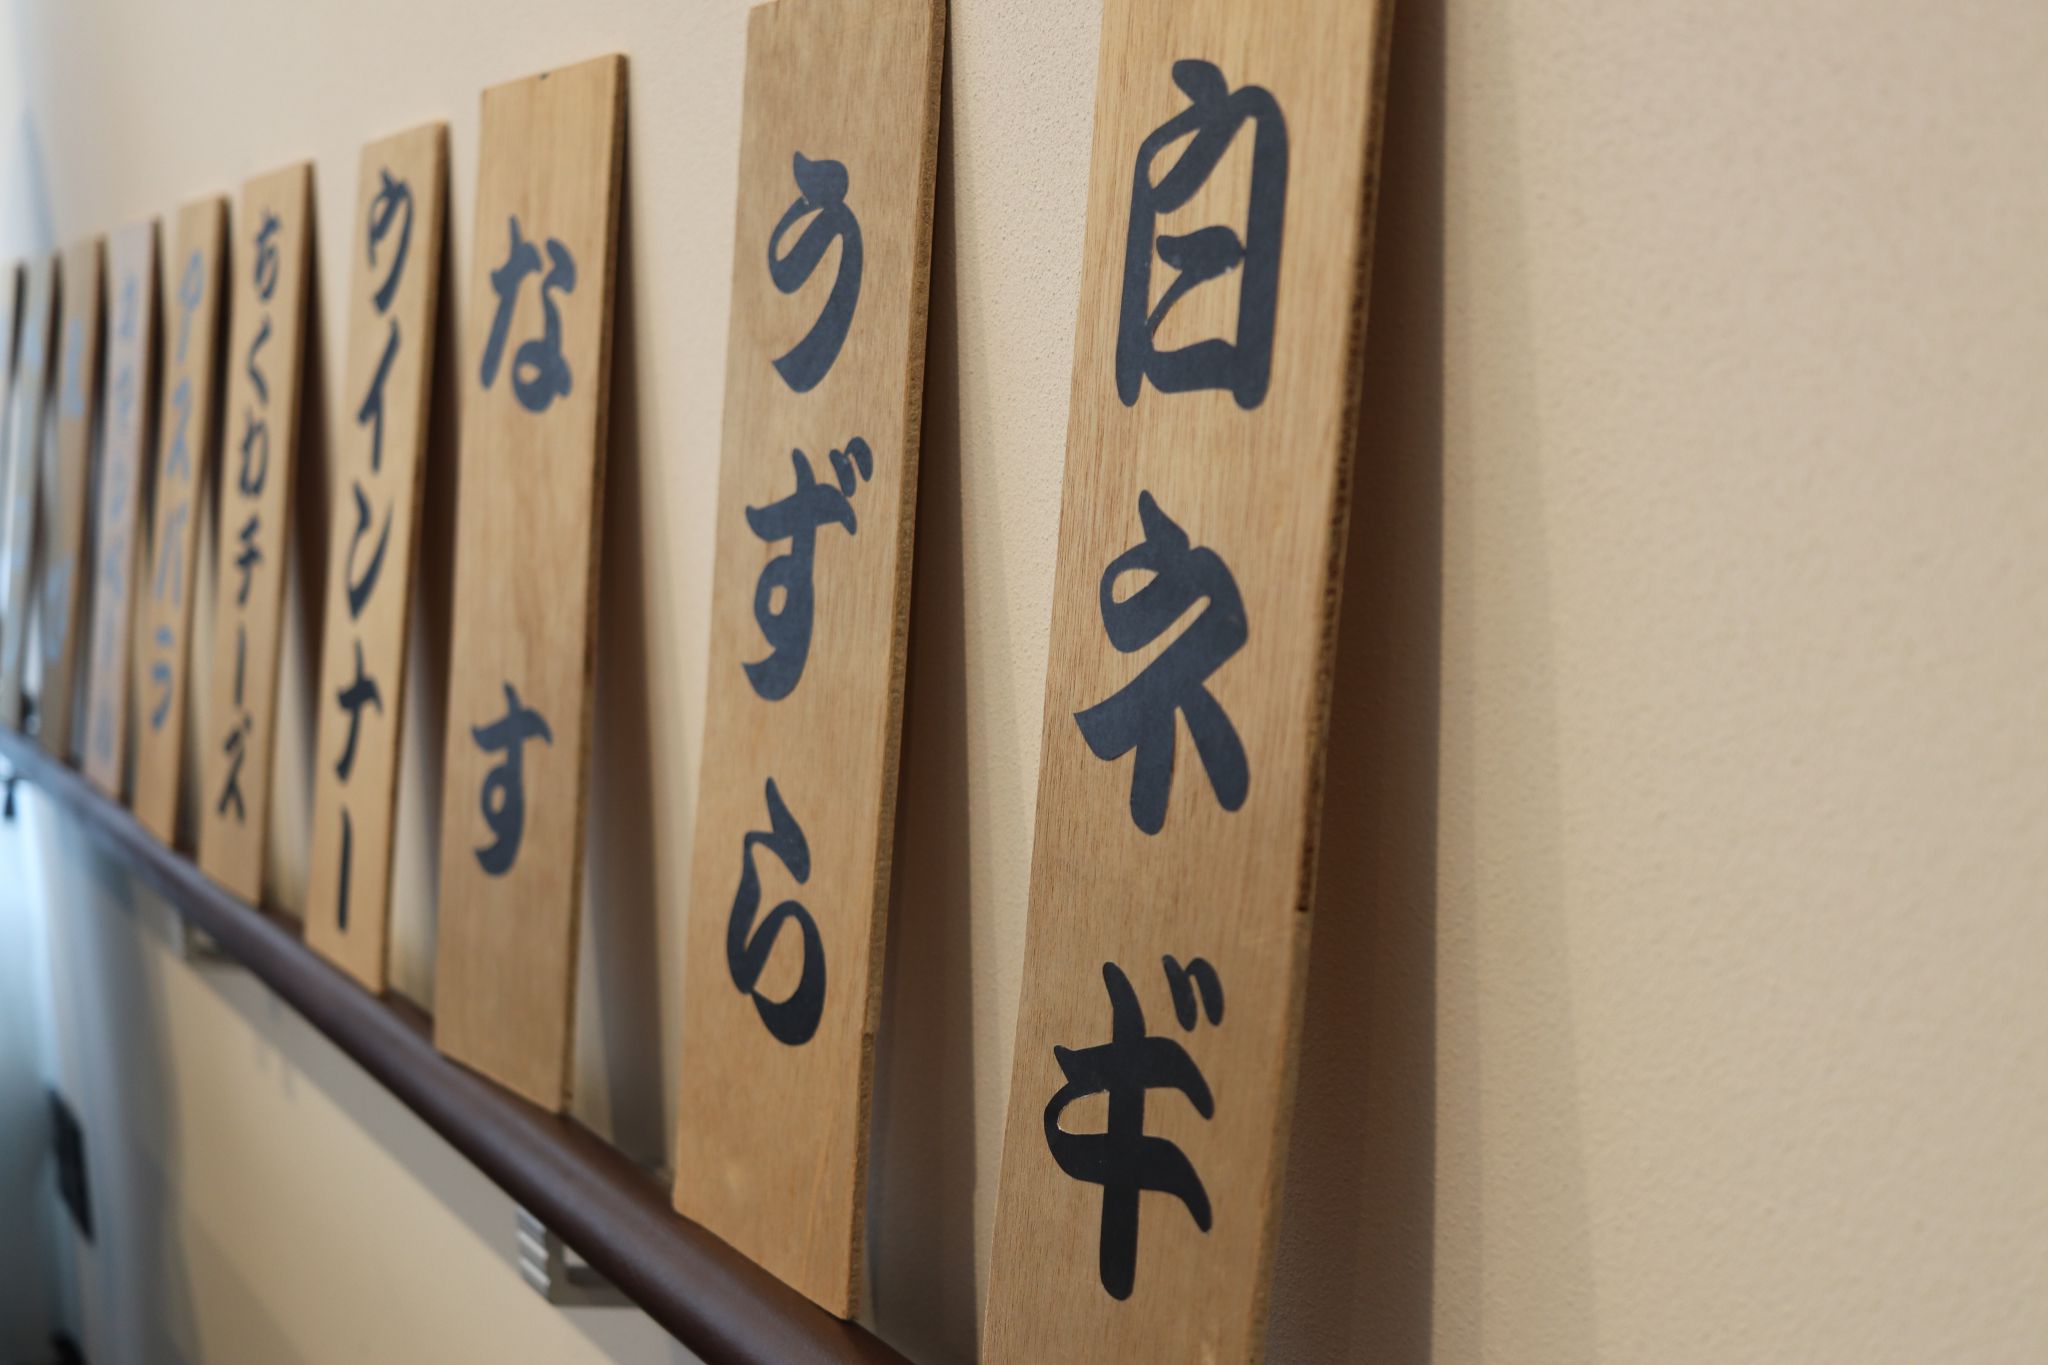 白ネギ
うずら
なす
ウインナー
ちくわチーズ
アスパラ